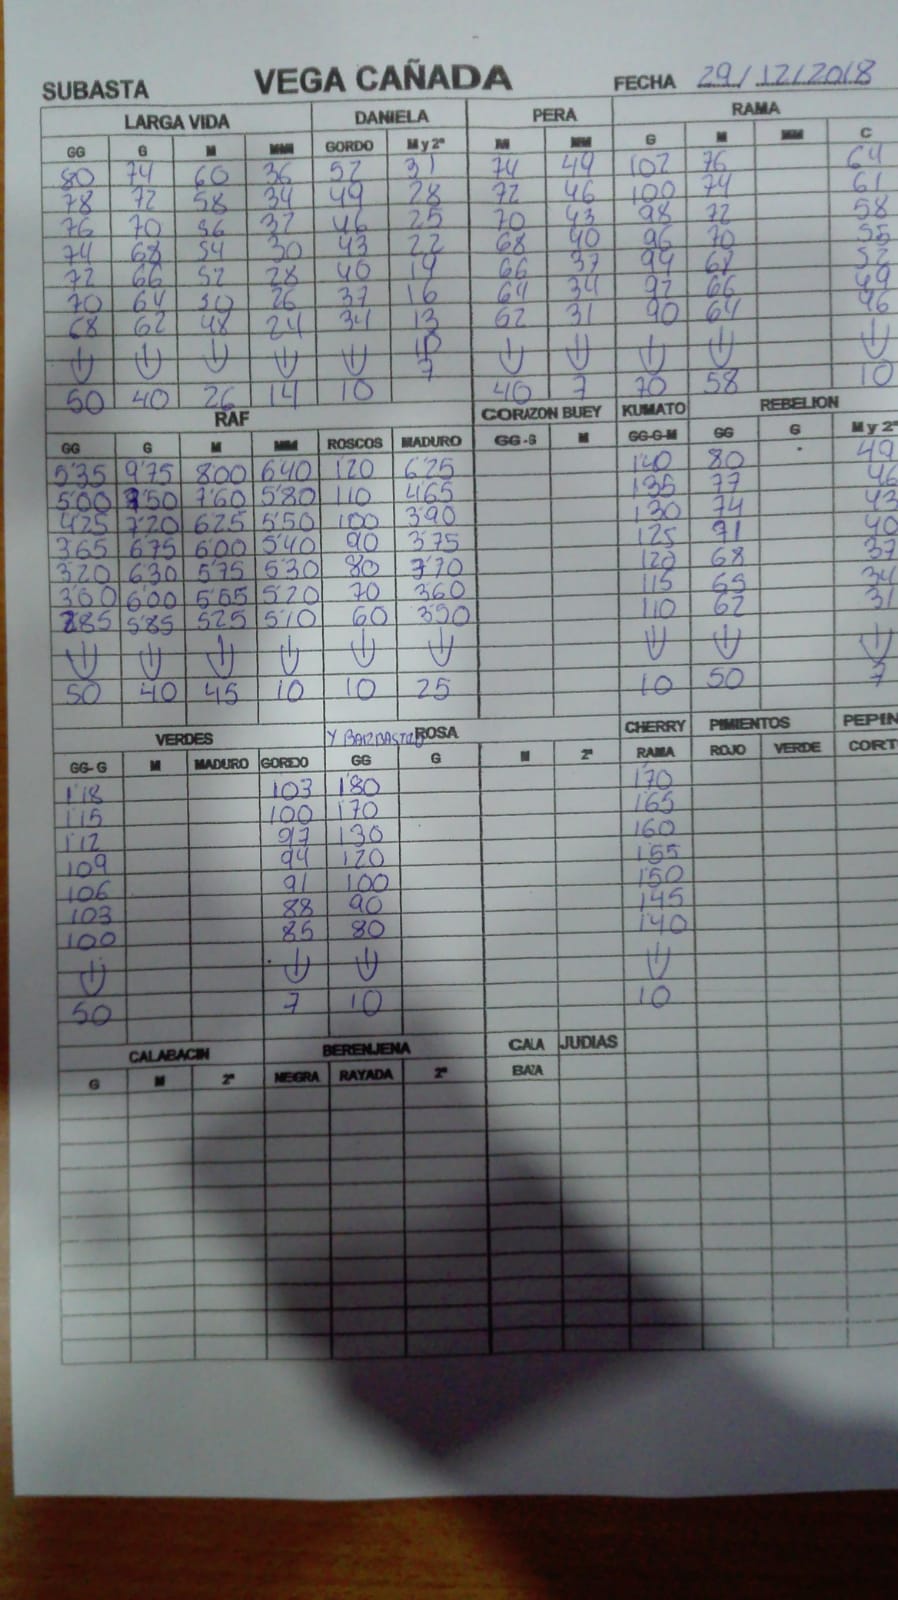 SUBASTA VEGA CAÑADA FECHA 29/12/2018
LARGA VIDA DANIELA PERA RAMA
GG G M MM GORDO M y 2ª M MM G M MM C
80 74 60 36 52 31 74 49 102 76 64
78 72 58 34 49 28 72 46 100 74 61
76 70 56 32 46 25 70 43 98 72 58
74 68 54 30 43 22 68 40 96 70 55
72 66 52 28 40 19 66 37 94 68 52
70 64 50 26 37 16 64 34 92 66 49
68 62 48 24 34 13 62 31 90 64 46
10
7
50 40 26 14 10 40 7 70 58 10
RAF CORAZON BUEY KUMATO REBELION
GG G M MM ROSCOS MADURO GG-G M GG-G-M GG G M y 2ª
5'35 9'75 8'00 6'40 1'20 6'25 1'40 80 49
5'00 8'50 7'60 5'80 1'10 4'65 1'35 77 46
4'25 7'20 6'25 5'50 1'00 3'90 1'30 74 43
3'65 6'75 6'00 5'40 90 3'75 1'25 71 40
3'20 6'30 5'75 5'30 80 3'70 1'20 68 37
3'00 6'00 5'55 5'20 70 3'60 1'15 65 34
2'85 5'85 5'25 5'10 60 3'50 1'10 62 31
50 40 45 10 10 25 10 50 7
VERDES Y BARBASTRO ROSA CHERRY PIMIENTOS PEPIN
GG-G M MADURO GORDO GG G M 2ª RAMA ROJO VERDE CORT
1'18 103 1'80 1'70
1'15 100 1'70 1'65
1'12 97 1'30 1'60
1'09 94 1'20 1'55
1'06 91 1'00 1'50
1'03 88 90 1'45
1'00 85 80 1'40
50 7 10 10
CALABACIN BERENJENA CALA JUDIAS
G M 2ª NEGRA RAYADA 2ª BA'A